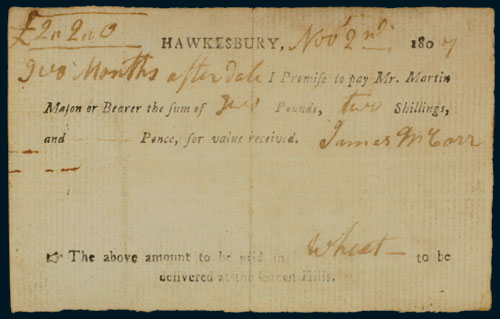 £2〃2〃0
HAWKESBURY, Novr 2nd 1807
Two Months after date I Promise to pay Mr. Martin
Mason or Bearer the sum of Two Pounds, two Shillings,
and —— Pence, for value received. James McCarr
☞ The above amount to be paid in Wheat — to be
delivered at the Green Hills.